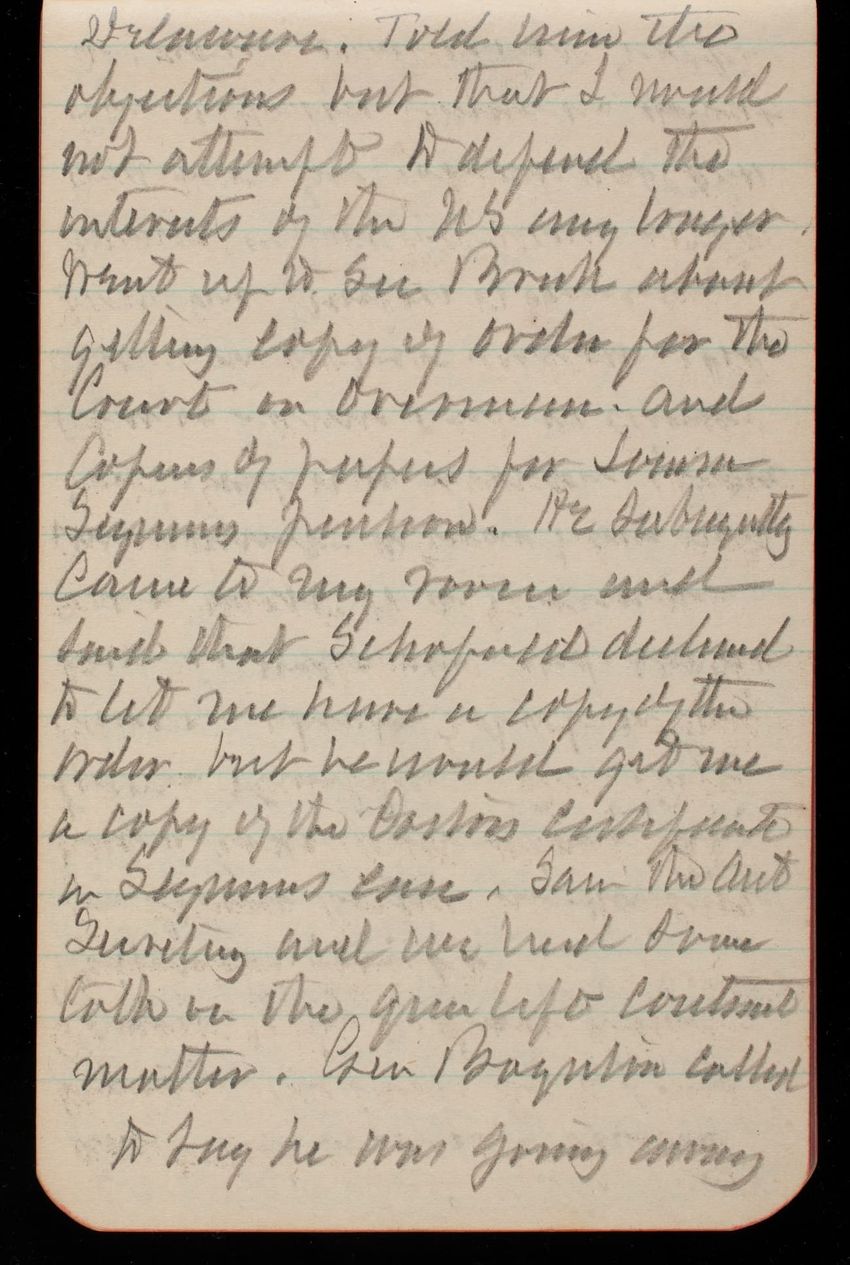 Delaware. Told him the
objections but that I would
not attempt to defend the
interests of the US any longer.
Went up to See Breck about
getting copy of order for the
Court on Overman. and
Copies of papers for
Seymours pension. He Subsequently
Came to my room and
said that Schofield declined
to let me have a copy of the
order but he would get me
a copy of the Doctors certificate
in Seymours case. Saw the Act
Secretary and we had some
talk on the contract
matter. Gen Boynton called
to say he was going away